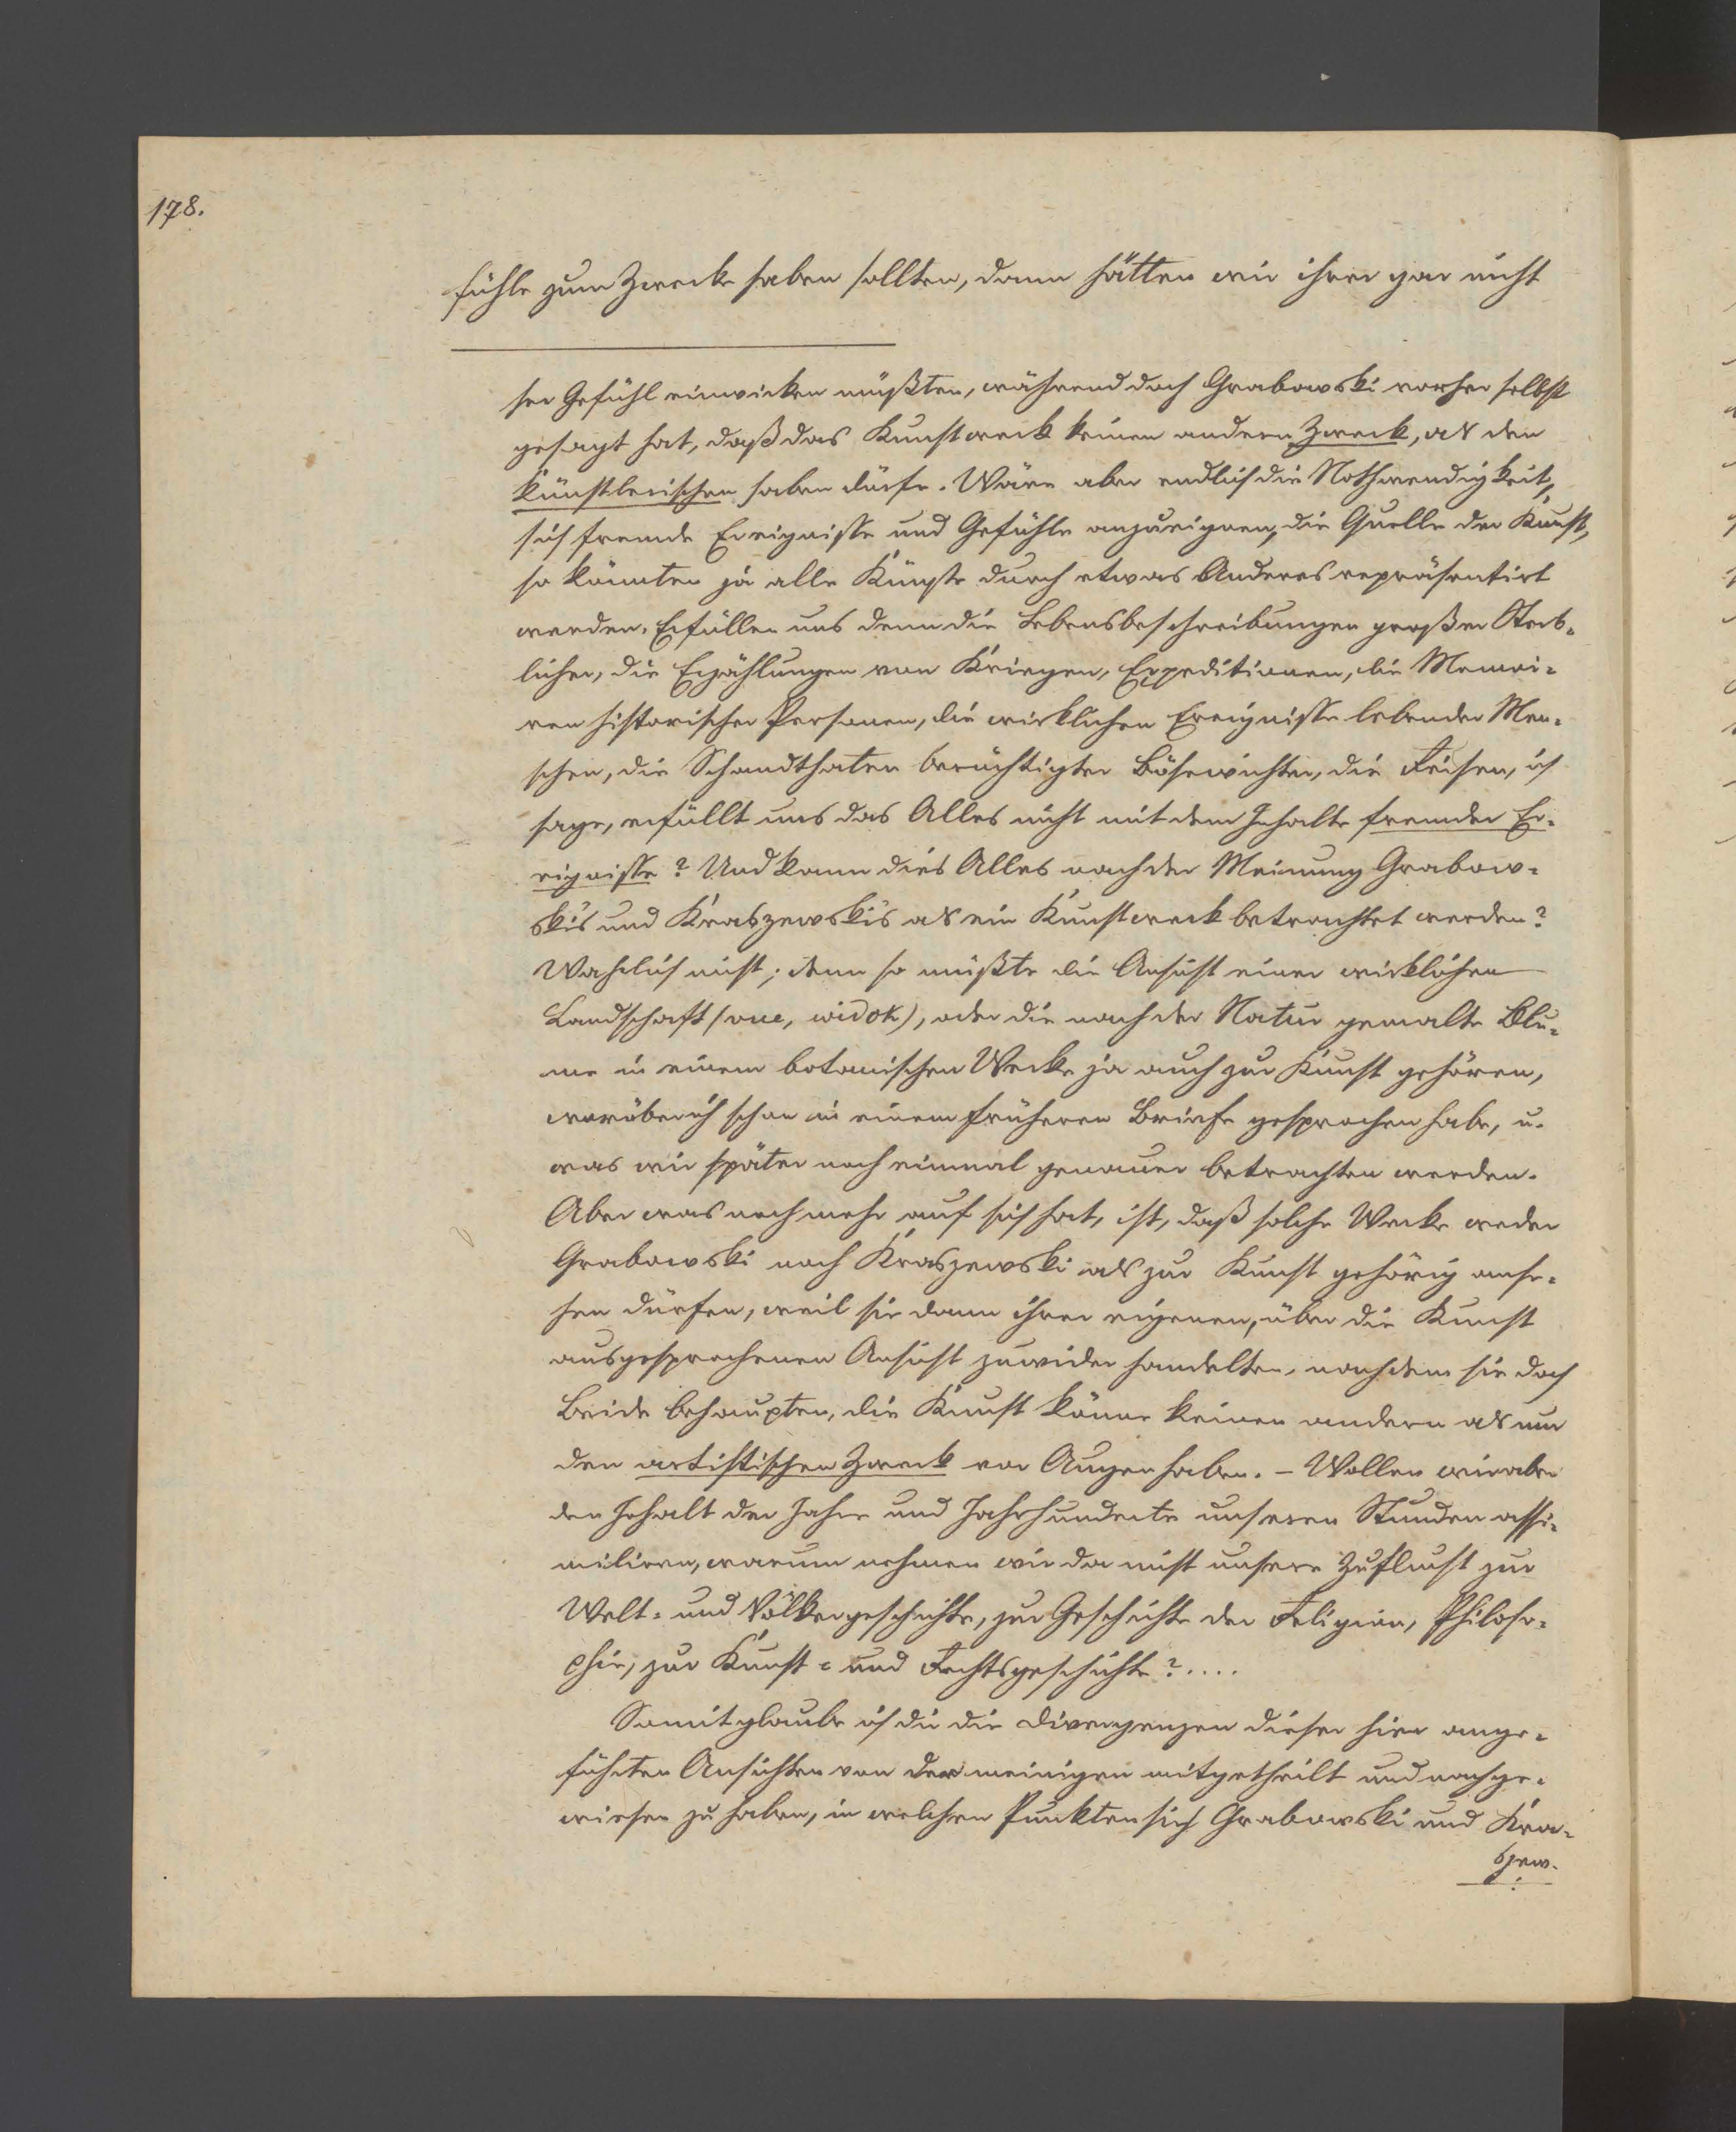 178.
fühle zum Zwecke haben sollten, dann hätten wir ihrer gar nicht
her Gefühl einwirken müßten, während doch Grabowski vorher selbst
gesagt hat, daß das Kunstwerk keinen andern Zweck, als den
künstlerischen haben dürfe. Wäre aber endlich die Nothwendigkeit,
sich fremde Ereignisse und Gefühle anzueignen, die Quelle der Kunst,
so könnten ja alle Künste durch etwas Anderes repräsentirt
werden. Erfüllen uns denn die Lebensbeschreibungen großer Sterb-
licher, die Erzählungen von Kriegen, Expeditionen, die Memoi-
ren historischer Personen, die wirklichen Ereignisse lebender Men-
schen, die Schandthaten berüchtigter Bösewichter, die Reisen, ich
sage, erfüllt uns das Alles nicht mit dem Inhalte fremder Er-
eignisse? Und kann dies Alles nach der Meinung Grabow-
ski's und Kraszewski's als ein Kunstwerk betrachtet werden?
Wahrlich nicht; denn so müßte die Ansicht einer wirklichen
Landschaft (vue, widok), oder die nach der Natur gemalte Blu-
me in einem botanischen Werke ja auch zur Kunst gehören,
worüber ich schon in einem früheren Briefe gesprochen habe, u.
was wir später noch einmal genauer betrachten werden.
Aber was noch mehr auf sich hat, ist, daß solche Werke weder
Grabowski noch Kraszewski als zur Kunst gehörig anse-
hen dürfen, weil sie dann ihrer eigenen, über die Kunst
ausgesprochenen Ansicht zuwider handelten, nachdem sie doch
Beide behaupten, die Kunst könne keinen andern als nur
den artistischen Zweck vor Augen haben. – Wollen wir aber
den Inhalt der Jahre und Jahrhunderte unseren Stunden assi-
miliren, warum nehmen wir da nicht unsere Zuflucht zur
Welt- und Völkergeschichte, zur Geschichte der Religion, Philoso-
phie, zur Kunst- und Rechtsgeschichte?....
Somit glaube ich dir die Divergenzen dieser hier ange-
führten Ansichten von der meinigen mitgetheilt und nachge-
wiesen zu haben, in welchen Punkten sich Grabowski und Kra-
szew-